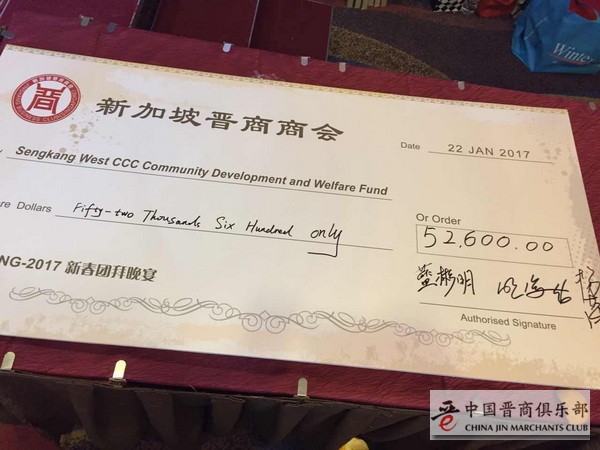 新加坡晋商商会
Date 22 JAN 2017
Sengkang West CCC Community Development and Welfare Fund
Dollars Fifty-two Thousands Six Hundred only
Or Order
52,600.00
NG-2017 新春团拜晚宴
Authorised Signature
Winter
中国晋商俱乐部
CHINA JIN MARCHANTS CLUB